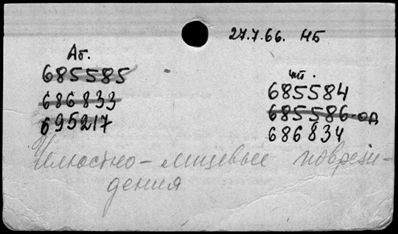 27.7.66. НБ
Аб.
685585
686833
695217
чт.
685584
685586-од
686834
Челюстно-лицевые повреж-
дения